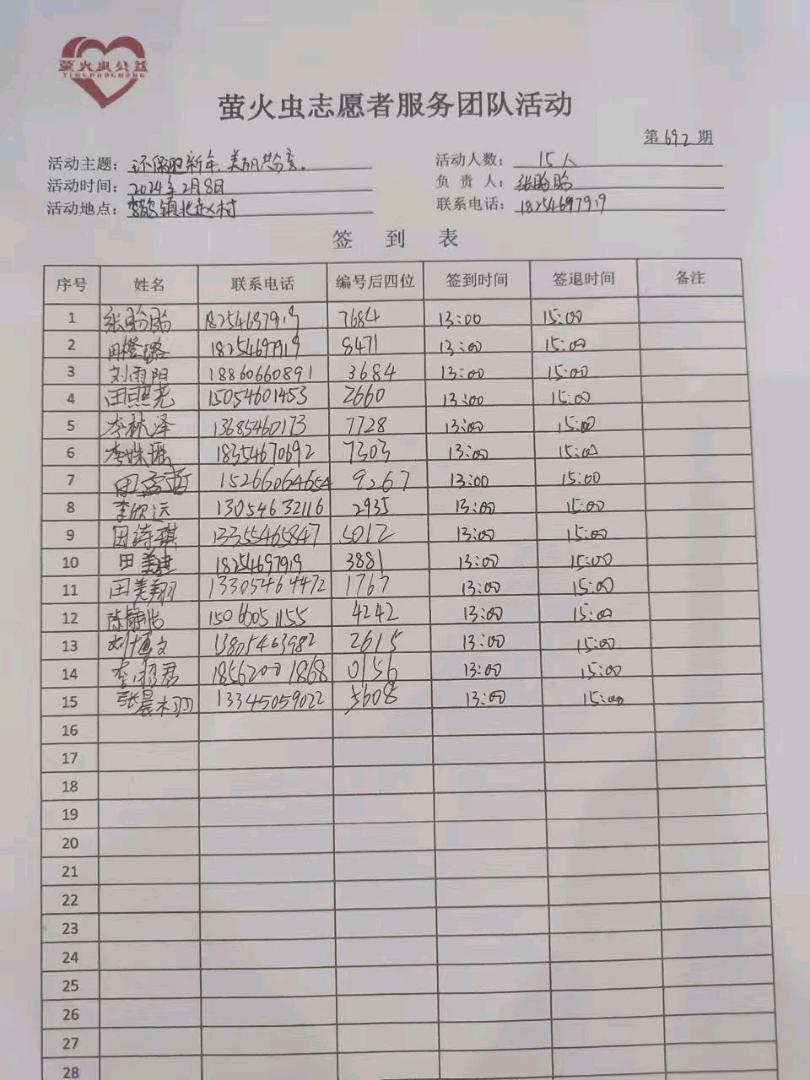 萤火虫公益
YINGHUOCHONG
萤火虫志愿者服务团队活动
第692期
活动主题：环保迎新年，美丽共分享。 活动人数：15人
活动时间：2024年2月8日 负责人：张盼盼
活动地点：镇北赵村 联系电话：18254697919
签到表
序号 姓名 联系电话 编号后四位 签到时间 签退时间 备注
1 张盼盼 18254697919 7684 13:00 15:00
2 田橙璐 18254697919 8471 13:00 15:00
3 刘雨阳 18860660891 3684 13:00 15:00
4 田照尧 15054601453 2660 13:00 15:00
5 李林泽 13685460173 7728 13:00 15:00
6 李姝瑶 18354670692 7303 13:00 15:00
7 田孟哲 15266064654 9267 13:00 15:00
8 李欣远 13054632116 2935 13:00 15:00
9 田诗琪 13355465847 5012 13:00 15:00
10 田 18254697919 3881 13:00 15:00
11 田美翔 13305464472 1767 13:00 15:00
12 陈静怡 15066051155 4242 13:00 15:00
13 刘博文 13805463982 2615 13:00 15:00
14 李君 18562001868 0156 13:00 15:00
15 张晨栩 13345059022 5608 13:00 15:00
16
17
18
19
20
21
22
23
24
25
26
27
28